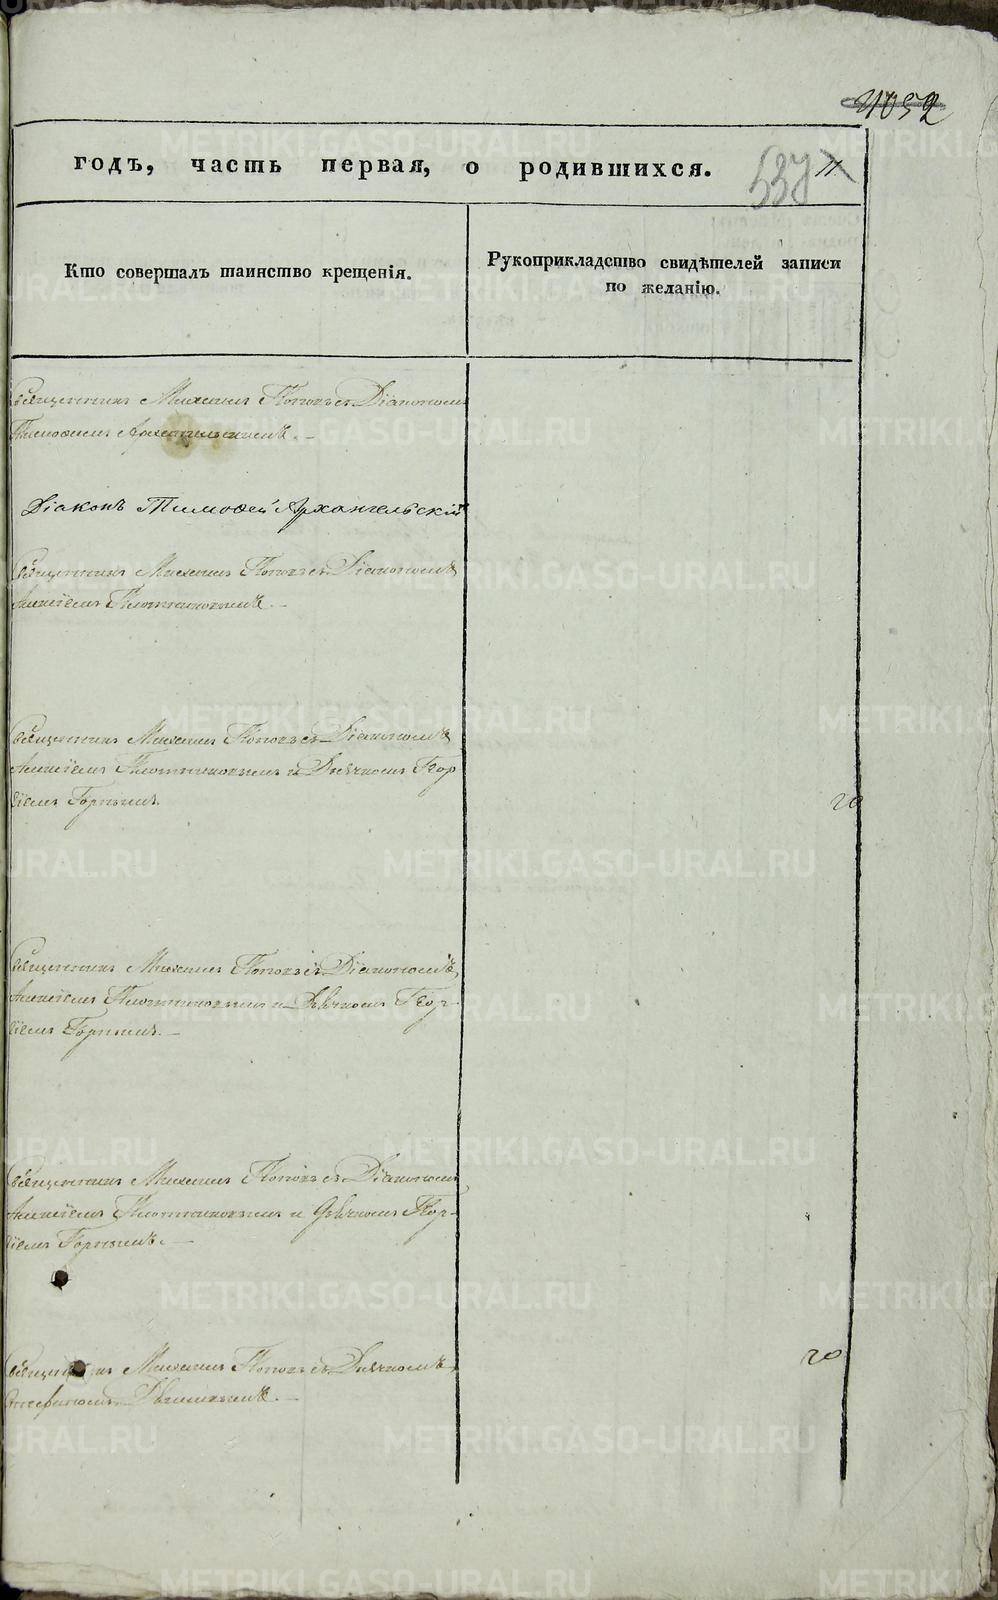 1052
годъ, часть первая, о родившихся.
537
Кто совершалъ таинство крещенія.
Рукоприкладство свидѣтелей записи
по желанію.
Священникъ Михаилъ Поповъ съ Діакономъ
Тимофеемъ Архангельскимъ. –
Діаконъ Тимофей Архангельскій
Священникъ Михаилъ Поповъ съ Діакономъ
Алексіемъ Плотниковымъ. –
Священникъ Михаилъ Поповъ съ Діакономъ
Алексіемъ Плотниковымъ и Дьячкомъ Геор
гіемъ Горнымъ.
Священникъ Михаилъ Поповъ съ Діакономъ
Алексіемъ Плотниковымъ и Дьячкомъ Геор-
гіемъ Горнымъ. –
Священникъ Михаилъ Поповъ съ Діакономъ
Алексіемъ Плотниковымъ и Дьячкомъ Геор-
гіемъ Горнымъ. –
Священникъ Михаилъ Поповъ съ Дьячкомъ
METRIKI.GASO-URAL.RU